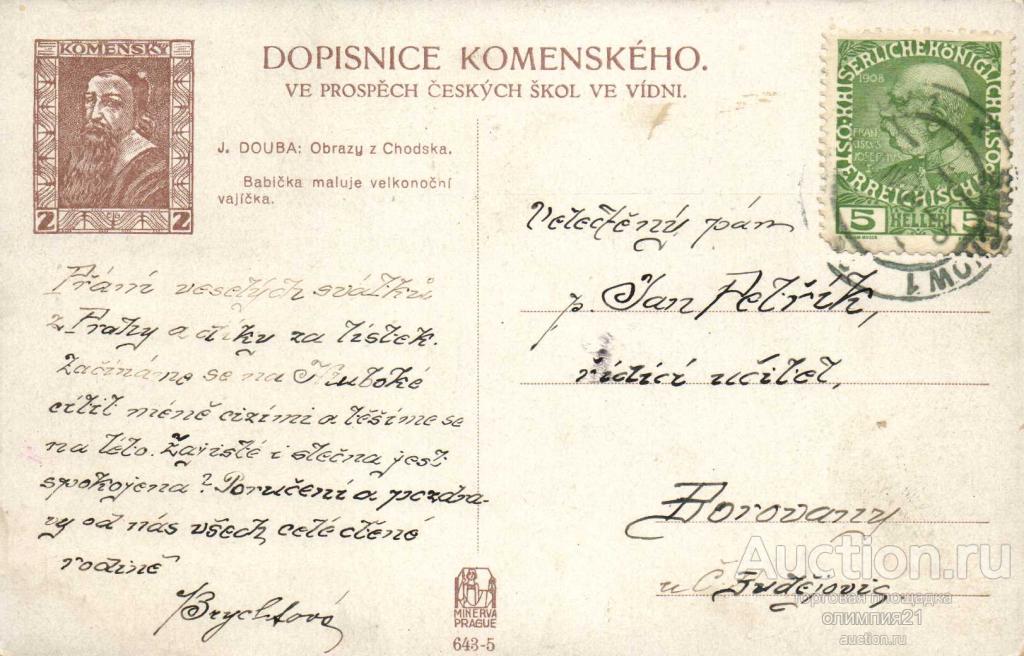 KOMENSKÝ
2 2
DOPISNICE KOMENSKÉHO.
VE PROSPĚCH ČESKÝCH ŠKOL VE VÍDNI.
J. DOUBA: Obrazy z Chodska.
Babička maluje velkonoční
vajíčka.
Přání veselých svátků
z Prahy a díky za lístek.
Začínáme se na Hluboké
cítit méně cizími a těšíme se
na léto. Zajisté i slečna jest
spokojena? Poručení a pozdra-
vy od nás všech celé ctěné
rodině
Brychtová
MINERVA
PRAGUE
643-5
KAISERLICHEKÖNIGLICHE
ÖSTERREICHISCHE
1908
5 HELLER 5
Veletěný pán
p. Jan Petřík,
řídící učitel,
Borovany
u Č. Budějovic
Auction.ru
торговая площадка
олимпия21
auction.ru